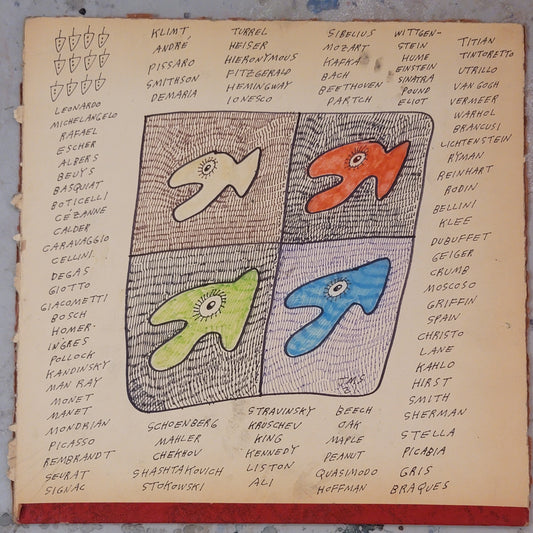 KLIMT,
ANDRE
PISSARO
SMITHSON
DEMARIA
TURREL
HEISER
HIERONYMOUS
FITZGERALD
HEMINGWAY
IONESCO
SIBELIUS
MOZART
KAFKA
BACH
BEETHOVEN
PARTCH
WITTGEN-
STEIN
HUME
EINSTEIN
SINATRA
POUND
ELIOT
TITIAN
TINTORETTO
UTRILLO
VAN GOGH
VERMEER
WARHOL
BRANCUSI
LICHTENSTEIN
RYMAN
REINHART
RODIN
BELLINI
KLEE
DUBUFFET
GEIGER
CRUMB
MOSCOSO
GRIFFIN
SPAIN
CHRISTO
LANE
KAHLO
HIRST
SMITH
SHERMAN
STELLA
PICABIA
GRIS
BRAQUES
LEONARDO
MICHELANGELO
RAFAEL
ESCHER
ALBERS
BEUYS
BASQUIAT
BOTICELLI
CÉZANNE
CALDER
CARAVAGGIO
CELLINI
DEGAS
GIOTTO
GIACOMETTI
BOSCH
HOMER
INGRES
POLLOCK
KANDINSKY
MAN RAY
MONET
MANET
MONDRIAN
PICASSO
REMBRANDT
SEURAT
SIGNAC
SCHOENBERG
MAHLER
CHEKHOV
SHASHTAKOVICH
STOKOWSKI
STRAVINSKY
KRUSCHEV
KING
KENNEDY
LISTON
ALI
BEECH
OAK
MAPLE
PEANUT
QUASIMODO
HOFFMAN